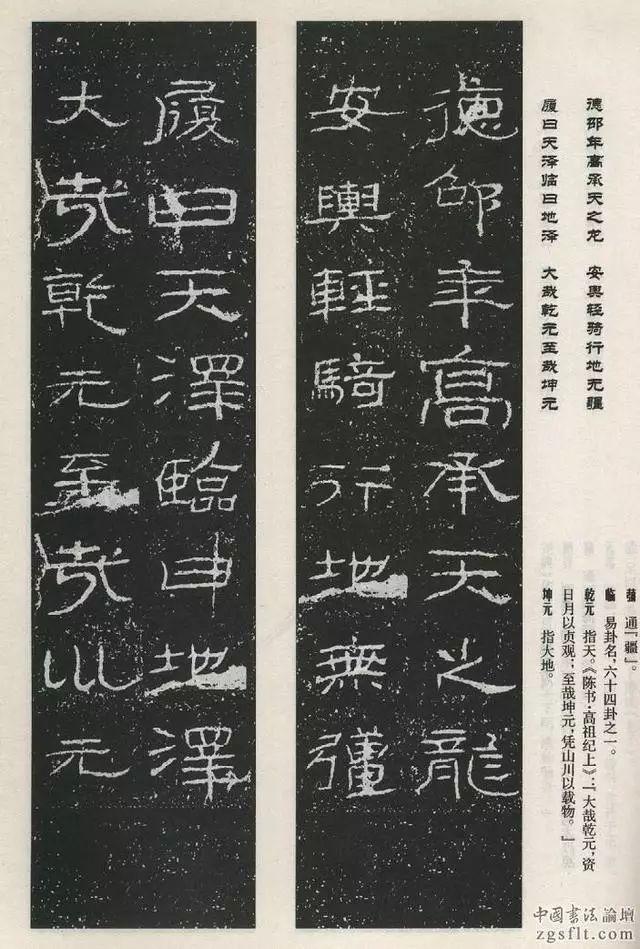 德邵年高承天之龙 安舆轻骑行地无疆
履曰天泽临曰地泽 大哉乾元至哉坤元
彊 通「疆」。
临 易卦名,六十四卦之一。
乾元 指天。《陈书·高祖纪上》:「大哉乾元,资
日月以贞观;至哉坤元,凭山川以载物。」
坤元 指大地。
德邵年高承天之龍
安輿輕騎行地無彊
履曰天澤臨曰地澤
大哉乾元至哉巛元
中國書法論壇
zgsflt.com